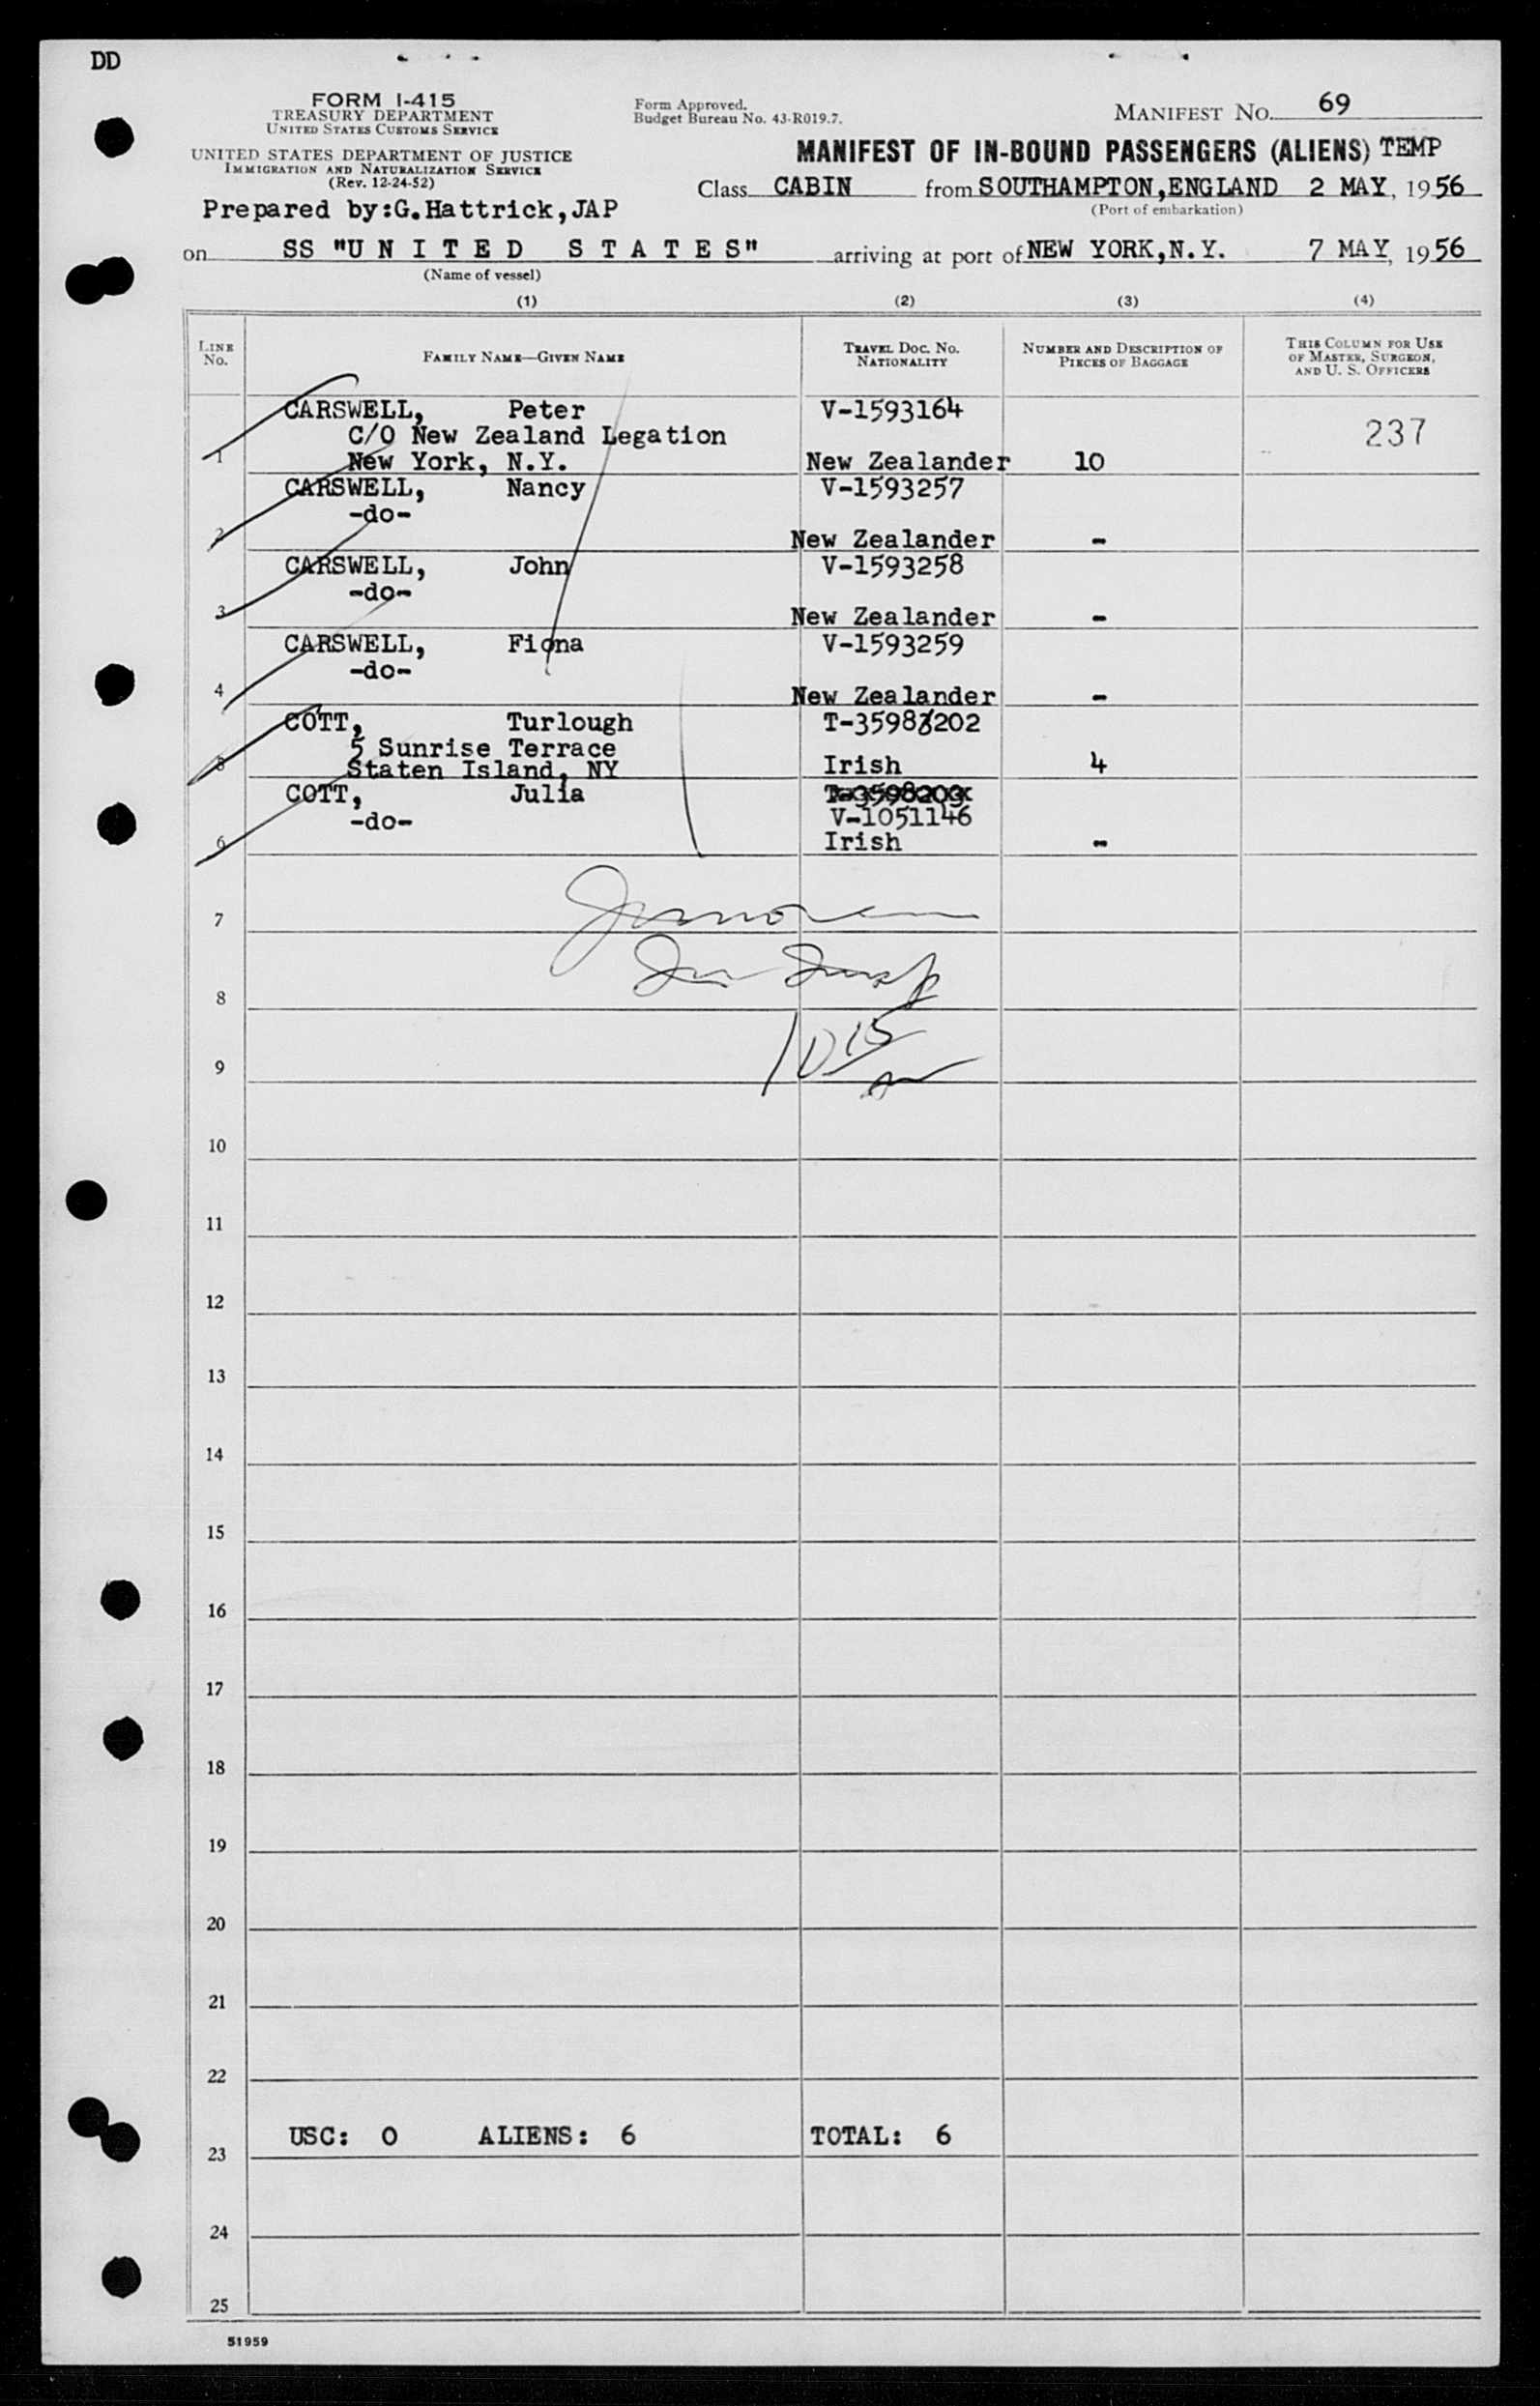 DD
FORM I-415
TREASURY DEPARTMENT
UNITED STATES CUSTOMS SERVICE
UNITED STATES DEPARTMENT OF JUSTICE
IMMIGRATION AND NATURALIZATION SERVICE
(Rev. 12-24-52)
Prepared by:G.Hattrick,JAP
Form Approved.
Budget Bureau No. 43-R019.7.
MANIFEST NO. 69
MANIFEST OF IN-BOUND PASSENGERS (ALIENS) TEMP
Class CABIN from SOUTHAMPTON,ENGLAND 2 MAY, 1956
(Port of embarkation)
on SS "U N I T E D S T A T E S" arriving at port of NEW YORK,N.Y. 7 MAY, 1956
(Name of vessel)
(1) (2) (3) (4)
LINE NO. FAMILY NAME—GIVEN NAME TRAVEL DOC. NO. NATIONALITY NUMBER AND DESCRIPTION OF PIECES OF BAGGAGE THIS COLUMN FOR USE OF MASTER, SURGEON, AND U. S. OFFICERS
CARSWELL, Peter V-1593164
C/O New Zealand Legation 237
1 New York, N.Y. New Zealander 10
CARSWELL, Nancy V-1593257
-do-
2 New Zealander -
CARSWELL, John V-1593258
-do-
3 New Zealander -
CARSWELL, Fiona V-1593259
-do-
4 New Zealander -
COTT, Turlough T-3598202
5 Sunrise Terrace
5 Staten Island, NY Irish 4
COTT, Julia T-3598203
-do- V-1051146
6 Irish -
7
8
10 15
9
10
11
12
13
14
15
16
17
18
19
20
21
22
USC: 0 ALIENS: 6 TOTAL: 6
23
24
25
51959